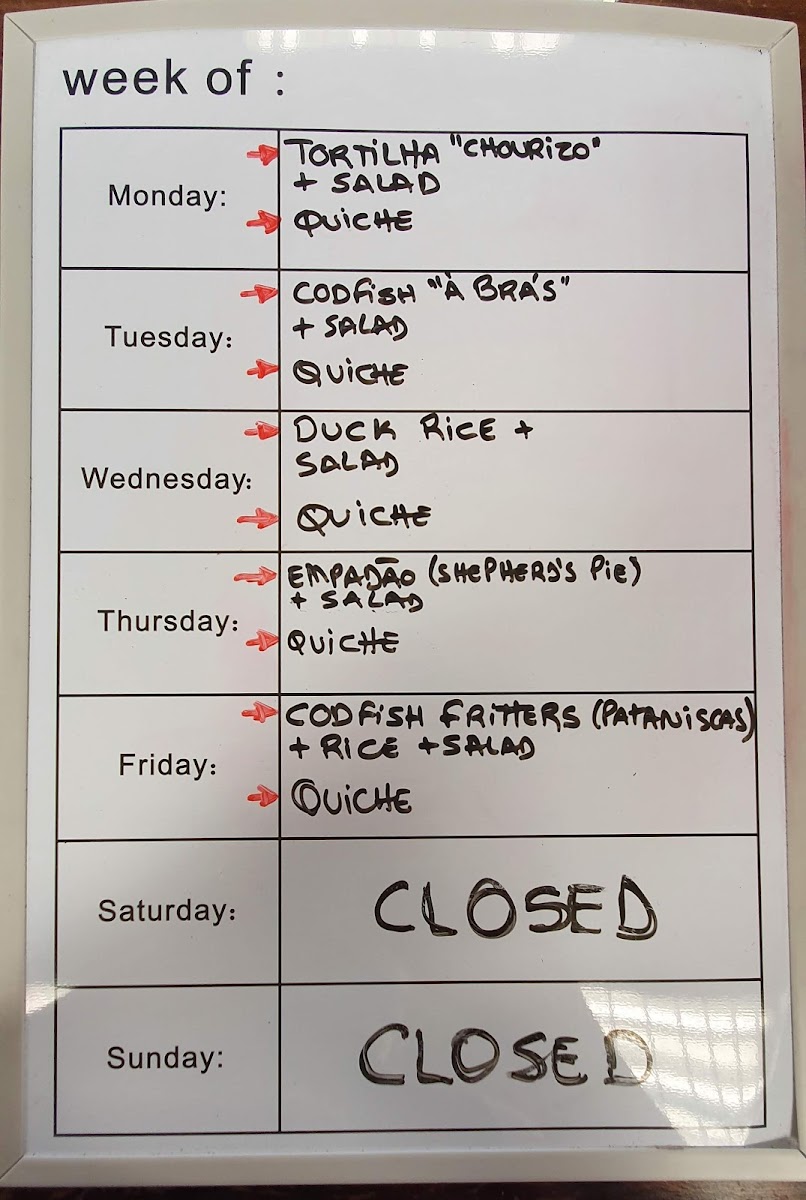 week of :
Monday:
TORTILHA "CHOURIZO"
+ SALAD
QUICHE
Tuesday:
CODFISH "À BRÁS"
+ SALAD
QUICHE
Wednesday:
DUCK RICE +
SALAD
QUICHE
Thursday:
EMPADÃO (SHEPHERD'S PIE)
+ SALAD
QUICHE
Friday:
CODFISH FRITTERS (PATANISCAS)
+ RICE + SALAD
QUICHE
Saturday:
CLOSED
Sunday:
CLOSED